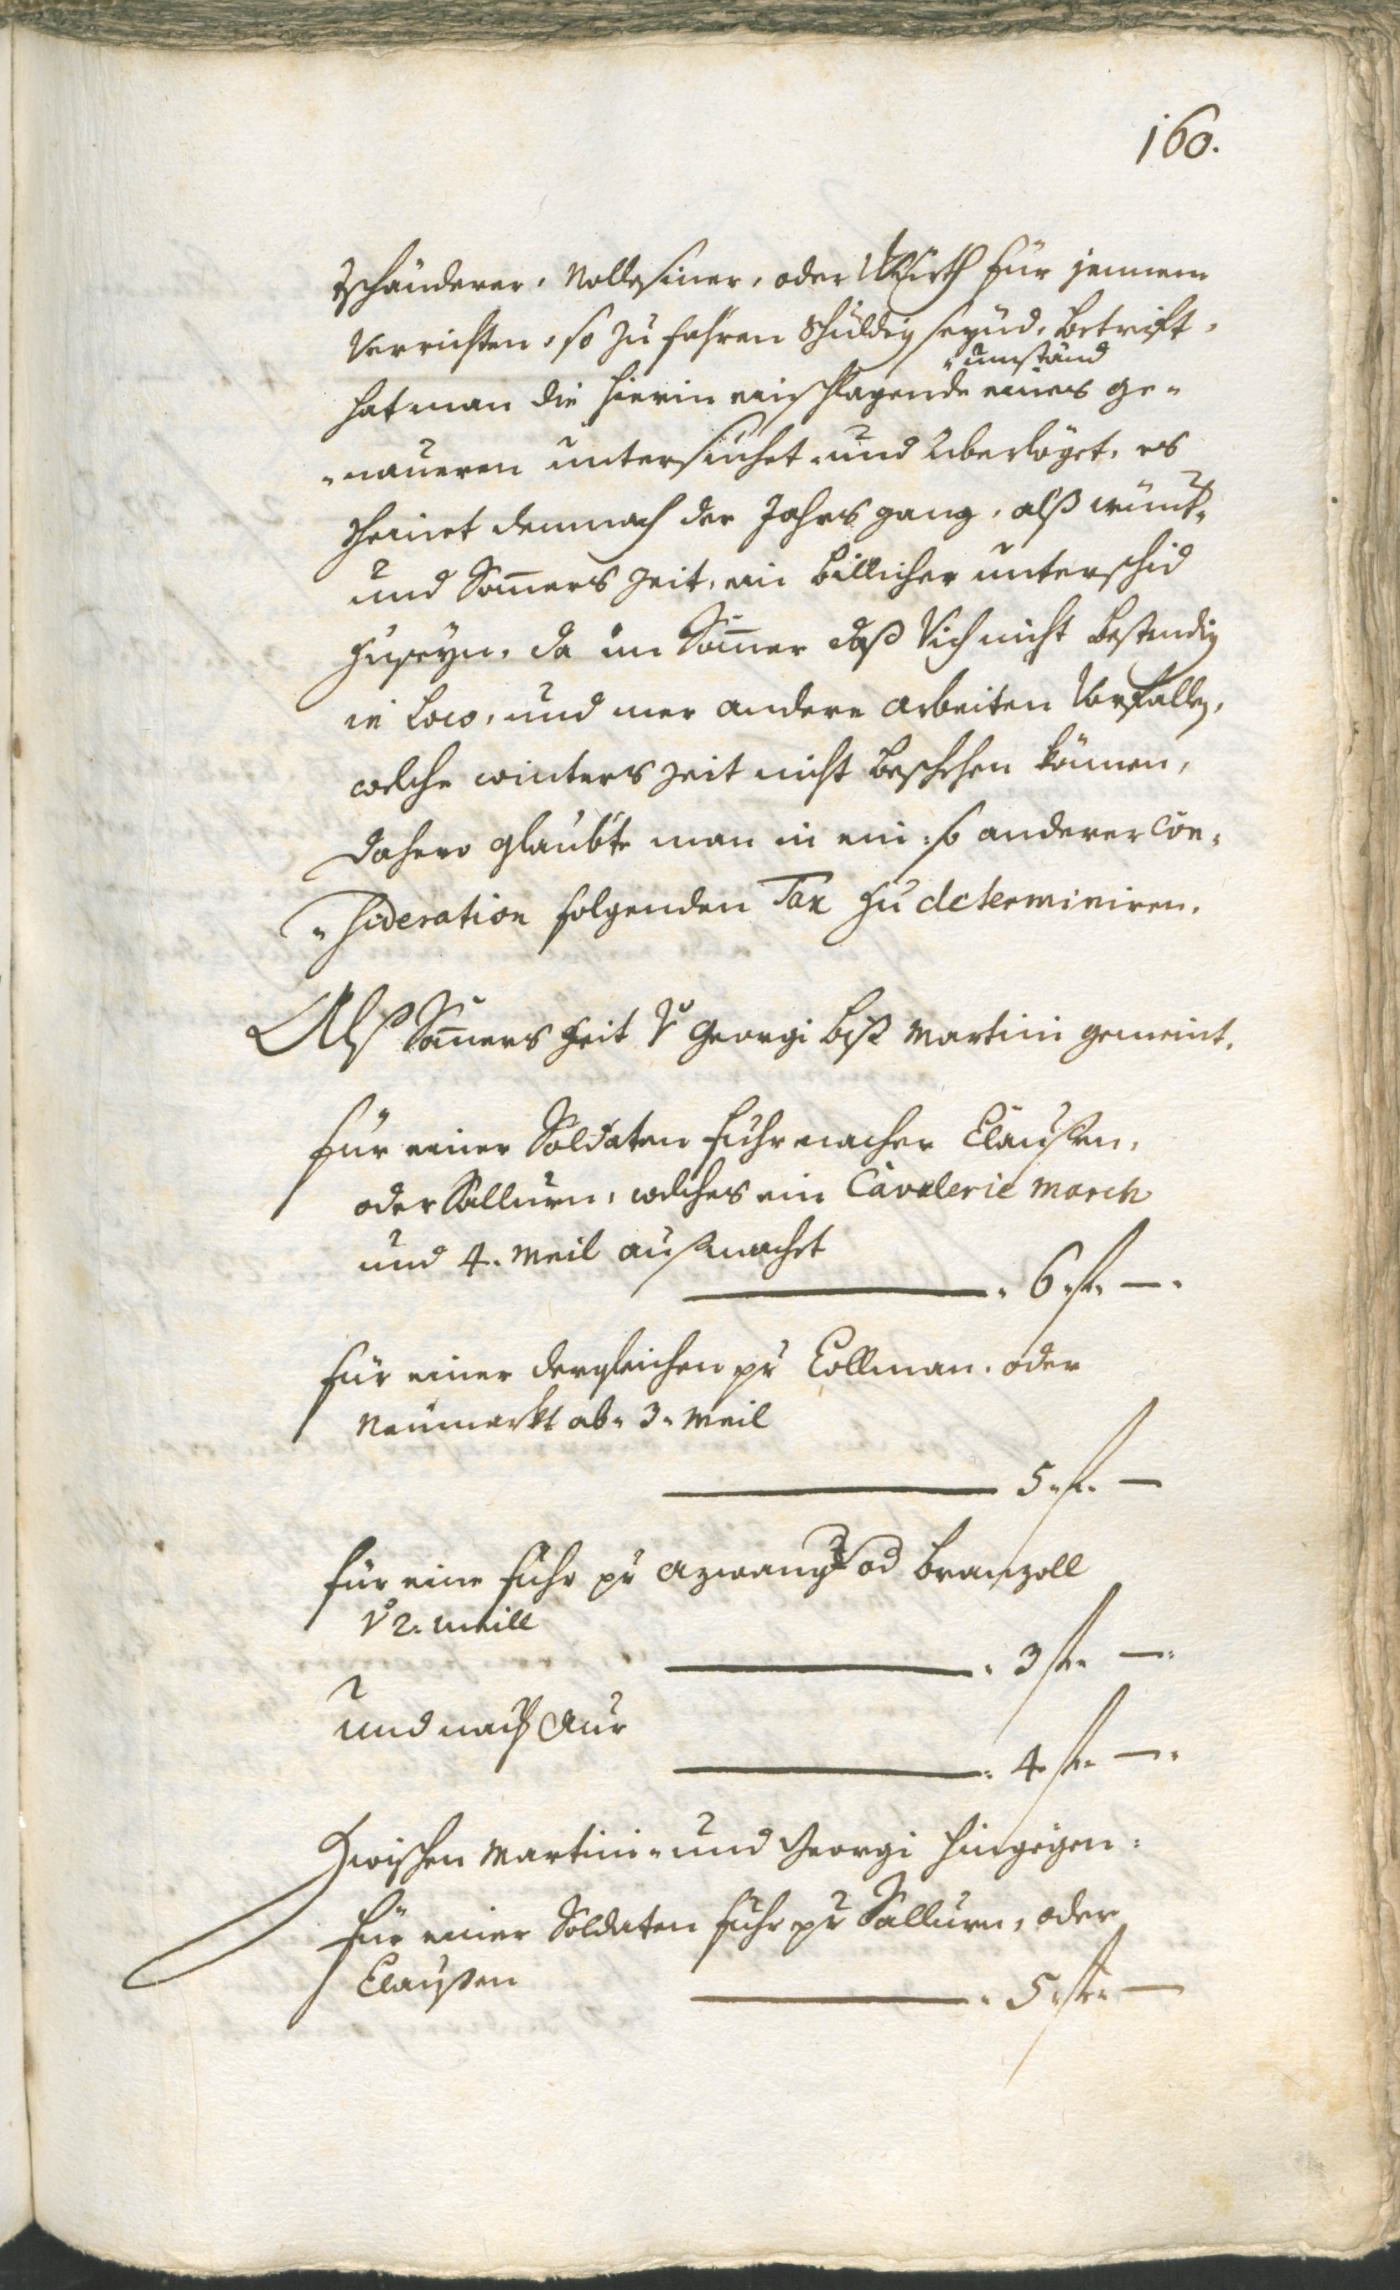 160.
Tschänderer, Nollesiner, oder Würth für jennem
verrichten, so zu fahren schuldig seyind, betrifft,
umständ
hat man die hierin einschlagende eines ge-
-naueren untersuchet und überlöget, es
scheinet demnach der Jahrs gang, alß wünt-
und Som̅ers Zeit, ein billicher unterschid
zuseyn, da im Som̅er daß Vich nicht bestendig
in Loco, und mer andere arbeiten vorfallen,
welche winters Zeit nicht beschehen können,
dahero glaubte man in ein: so anderer Con-
-sideration folgenden Tax zu determiniren.
Alß Som̅ers Zeit v. Georgi biß Martini gemeint.
für einer Soldaten fuhr nacher Clausen,
oder Sallurn, welches ein Cavalerie March
und 4. Meil außmachet
6 fl. —
für einer dergleichen pr Collman, oder
Neumarkt ab 3. Meil
5 fl. —
für eine fuhr pr Azwang od Branzoll
v. 2. meill
3 fl. —
und nach Aur
4 fl. —
Zwischen Martini- und Georgi hingegen:
für einer Soldaten fuhr pr Sallurn, oder
Clausen
5 fl. —